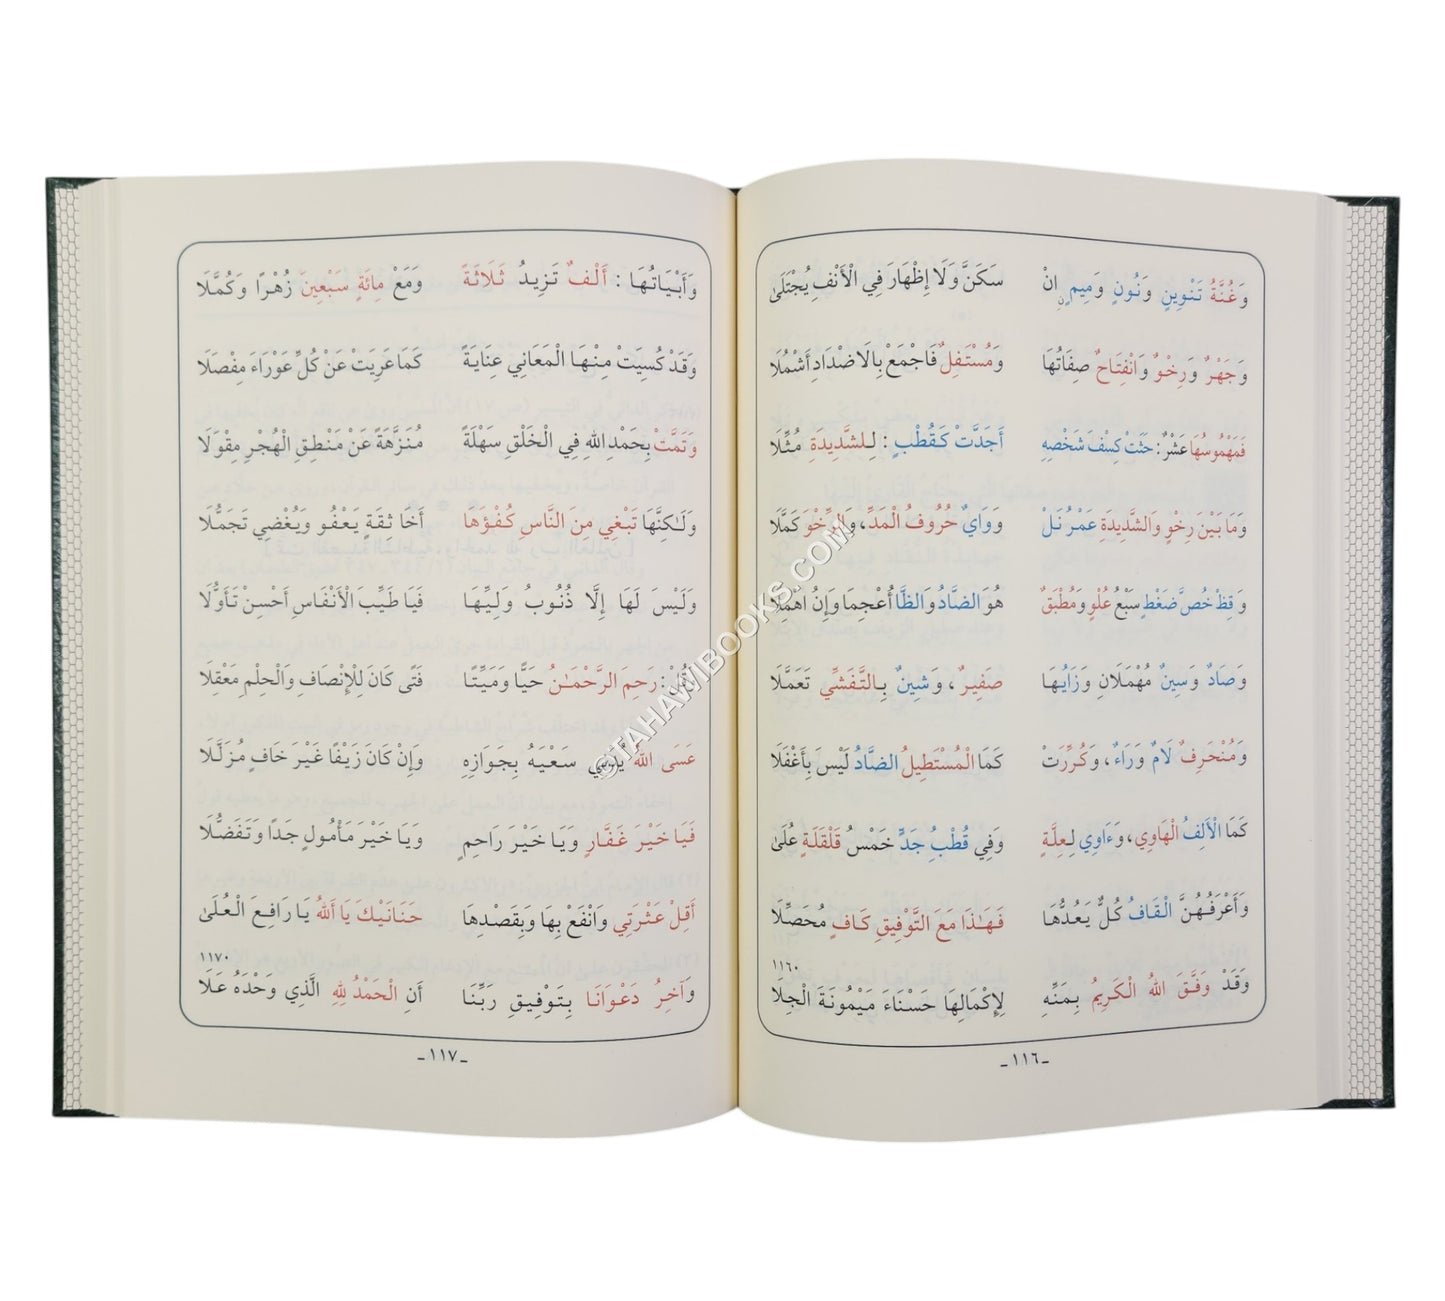 وَغُنَّةُ تَنْوِينٍ وَنُونٍ وَمِيمٍ انْ سَكَنَّ وَلَا إِظْهَارَ فِي الْأَنْفِ يُجْتَلَىٰ
وَجَهْرٌ وَرِخْوٌ وَانْفِتَاحٌ صِفَاتُهَا وَمُسْتَفِلٌ فَاجْمَعْ بِالَاضْدَادِ أَشْمُلَا
فَمَهْمُوسُهَا عَشْرٌ: حَثَتْ كِسْفَ شَخْصِهِ أَجَدَّتْ كَقُطْبٍ : لِلشَّدِيدَةِ مُثِّلَا
وَمَا بَيْنَ رِخْوٍ وَالشَّدِيدَةِ عَمْرُ نَلْ وَوَايٌ حُرُوفُ الْمَدِّ، وَالرِّخْوَ كَمَّلَا
وَقِظْ خُصَّ ضَغْطٍ سَبْعُ عُلْوٍ وَمُطْبَقٌ هُوَ الضَّادُ وَالظَّا أُعْجِمَا وَإِنُ اهْمِلَا
وَصَادٌ وَسِينٌ مُهْمَلَانِ وَزَايُهَا صَفِيرٌ، وَشِينٌ بِالتَّفَشِّي تَعَمَّلَا
وَمُنْحَرِفٌ لَامٌ وَرَاءٌ، وَكُرِّرَتْ كَمَا الْمُسْتَطِيلُ الضَّادُ لَيْسَ بِأَغْفَلَا
كَمَا الْأَلِفُ الْهَاوِي، وَءَاوِي لِعِلَّةٍ وَفِي قُطْبُ جَدٍّ خَمْسُ قَلْقَلَةٍ عُلَىٰ
وَأَعْرَفُهُنَّ الْقَافُ كُلٌّ يَعُدُّهَا فَهَٰذَا مَعَ التَّوْفِيقِ كَافٍ مُحَصِّلَا
١١٦٠
وَقَدْ وَفَّقَ اللهُ الْكَرِيمُ بِمَنِّهِ لِإِكْمَالِهَا حَسْنَاءَ مَيْمُونَةَ الْجِلَا
ـ ١١٦ ـ
وَأَبْيَاتُهَا : أَلْفٌ تَزِيدُ ثَلَاثَةً وَمَعْ مِائَةٍ سَبْعِينَ زُهْرًا وَكُمَّلَا
وَقَدْ كُسِيَتْ مِنْهَا الْمَعَانِي عِنَايَةً كَمَا عَرِيَتْ عَنْ كُلِّ عَوْرَاءَ مِفْصَلَا
وَتَمَّتْ بِحَمْدِ اللهِ فِي الْخَلْقِ سَهْلَةً مُنَزَّهَةً عَنْ مَنْطِقِ الْهُجْرِ مِقْوَلَا
وَلَٰكِنَّهَا تَبْغِي مِنَ النَّاسِ كُفْؤَهَا أَخَا ثِقَةٍ يَعْفُو وَيُغْضِي تَجَمُّلَا
وَلَيْسَ لَهَا إِلَّا ذُنُوبُ وَلِيِّهَا فَيَا طَيِّبَ الْأَنْفَاسِ أَحْسِنْ تَأَوُّلَا
وَقُلْ: رَحِمَ الرَّحْمَٰنُ حَيًّا وَمَيِّتًا فَتًى كَانَ لِلْإِنْصَافِ وَالْحِلْمِ مَعْقِلَا
عَسَى اللهُ يُدْنِي سَعْيَهُ بِجَوَازِهِ وَإِنْ كَانَ زَيْفًا غَيْرَ خَافٍ مُزَلَّلَا
فَيَا خَيْرَ غَفَّارٍ وَيَا خَيْرَ رَاحِمٍ وَيَا خَيْرَ مَأْمُولٍ جَدًا وَتَفَضُّلَا
أَقِلْ عَثْرَتِي وَانْفَعْ بِهَا وَبِقَصْدِهَا حَنَانَيْكَ يَا أَللهُ يَا رَافِعَ الْعُلَىٰ
١١٧٠
وَآخِرُ دَعْوَانَا بِتَوْفِيقِ رَبِّنَا أَنِ الْحَمْدُ لِلهِ الَّذِي وَحْدَهُ عَلَا
ـ ١١٧ ـ
©TAHAWIBOOKS.COM